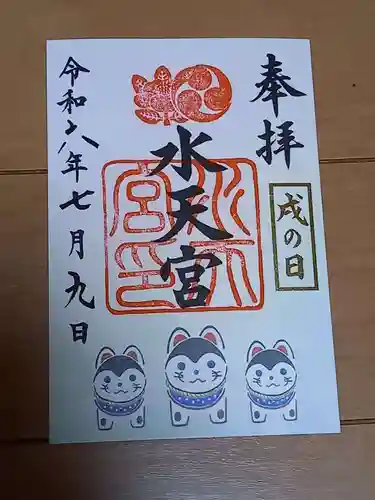 奉拝
戌の日
水天宮
令和八年七月九日